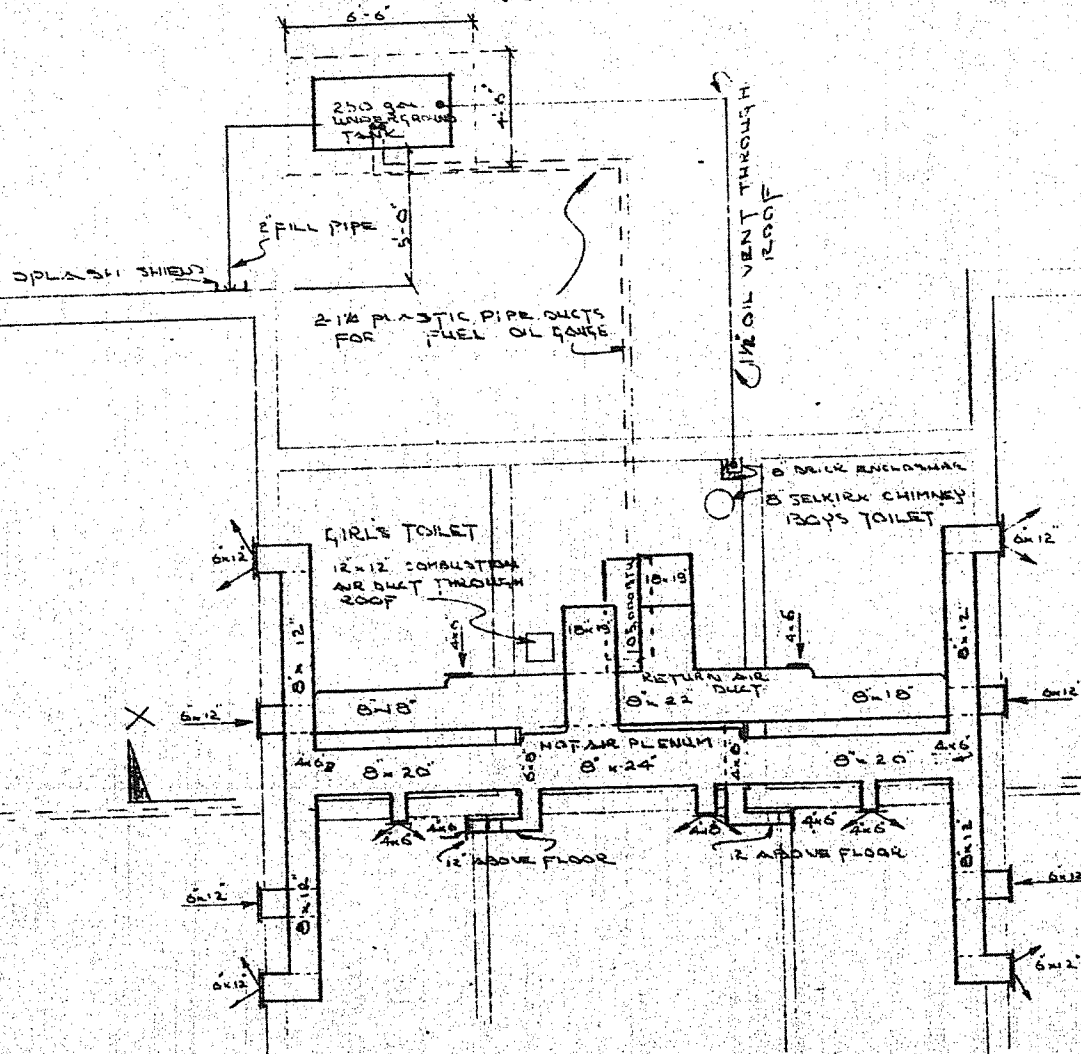 6'-6"
250 gal.
UNDERGROUND
TANK
4'-6"
2" FILL PIPE
5'-0"
SPLASH SHIELD
2-1¼ PLASTIC PIPE DUCTS
FOR FUEL OIL GAUGE
1½" OIL VENT THROUGH
ROOF
8" BRICK ENCLOSURE
8" SELKIRK CHIMNEY
BOYS TOILET
GIRLS TOILET
12"x12" COMBUSTION
AIR DUCT THROUGH
ROOF
6x12"
6x12"
18x18
18x18
8"x12"
8"x12"
4x6
4x6
RETURN AIR
DUCT
8"x18"
8"x22"
8"x18"
6x12"
6x12"
HOT AIR PLENUM
4x6
8"x20"
6x8
8"x24"
4x8
8"x20"
4x6
4x6
4x6
4x8
4x6
4x6
12" ABOVE FLOOR
12" ABOVE FLOOR
6"x12"
8"x12"
8"x12"
6x12
6x12"
6x12"